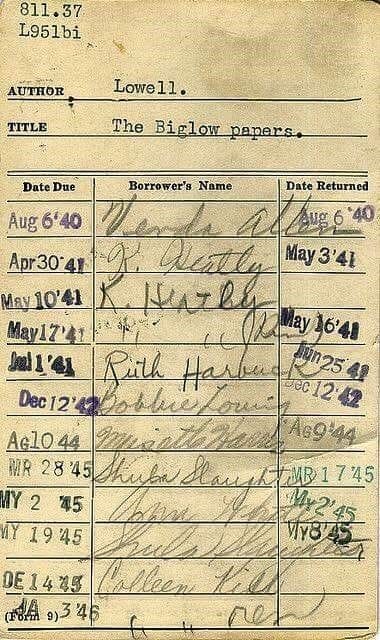 811.37
L951bi
AUTHOR Lowell.
TITLE The Biglow papers.
Date Due Borrower's Name Date Returned
Aug 6'40 Allen Aug 6 '40
Apr 30 '41 K. Heatley May 3 '41
May 10 '41 K. Heatley
May 17 '41 " " May 16 '41
Jul 1 '41 Ruth Harbuck Jun 25 41
Dec 12 '42 Bobbie Dec 12 '42
Ag 10 44 Ag 9 '44
MR 28 '45 Shuba Slaughter MR 17 '45
MY 2 '45 My 2 '45
MY 19 45 Slaughter My 8 '45
DE 14 45 Colleen
JA 3 '46 " " ren
(Form 9)